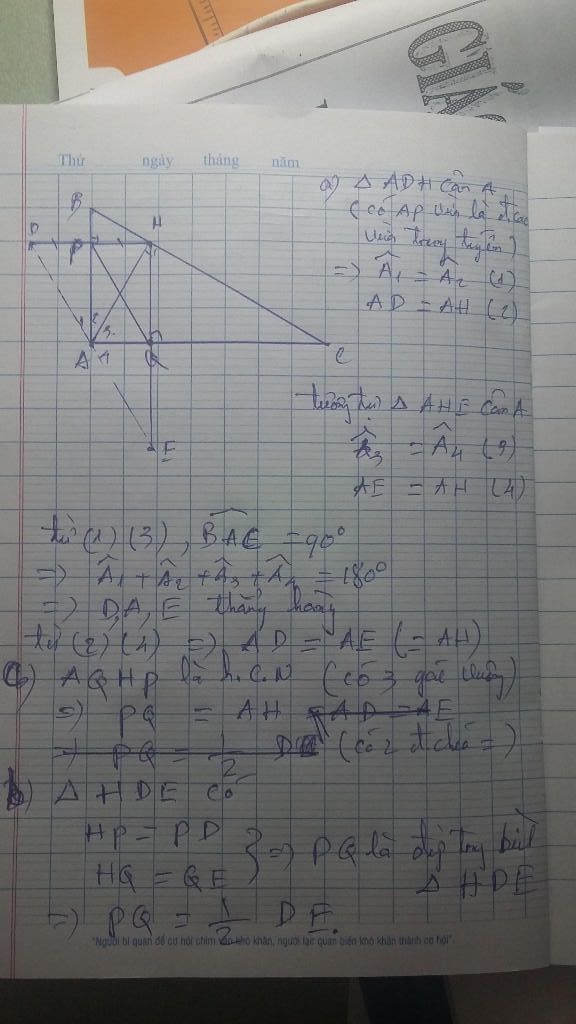 GIÁ
Thứ ngày tháng năm
B
D
P
H
1
2
3
A
4
Q
C
E
a) Δ ADH cân A
(có AP vừa là đ.cao
vừa trung tuyến)
=> Â1 = Â2 (1)
AD = AH (2)
tương tự Δ AHE cân A
Â3 = Â4 (3)
AE = AH (4)
từ (1) (3), BAC = 90°
=> Â1 + Â2 + Â3 + Â4 = 180°
=> D, A, E thẳng hàng
từ (2) (4) => AD = AE (= AH)
c) AQHP là h.c.N (có 3 góc vuông)
=> PQ = AH = AD = AE
=> PQ = 1/2 DE (có 2 đ.chéo =)
b) Δ HDE có
HP = PD
HQ = QE } => PQ là đg trung bình
Δ HDE
=> PQ = 1/2 DE.
"Người bi quan để cơ hội chìm vào khó khăn, người lạc quan biến khó khăn thành cơ hội".